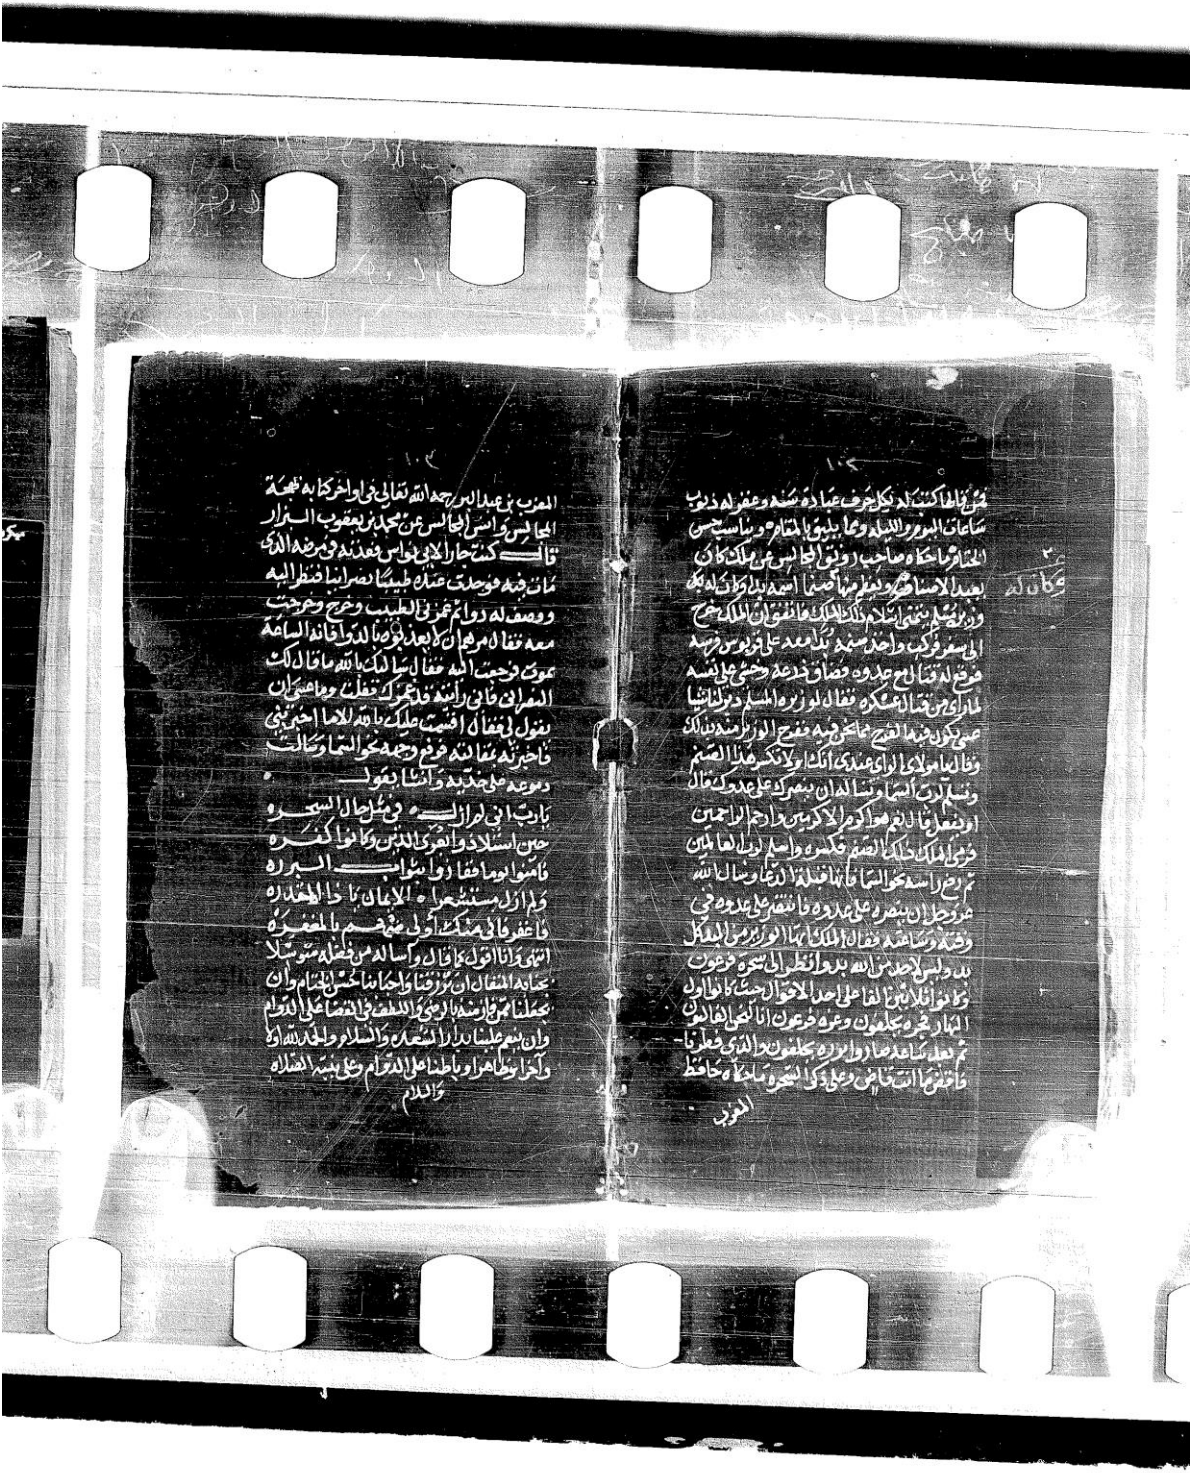 ١٠٢
فمن قالها كتب له بكل حرف عبادة سنة وغفر له ذنوب
ساعات اليوم والليلة ومما يليق بالمقام ويناسب حسن
الختام ما حكاه صاحب رونق المجالس عن ملك كان
يعبد الاصنام ويعظم منها صنما اسمه بد وكان له بكل
وكان له
وزير مسلم يتمنى اسلام ذلك الملك فاتفق ان الملك خرج
الى سفر فركب واخذ صنمه بد معه على قربوس فرسه
فوقع له قتال مع عدوه فضاق ذرعه وخشى على نفسه
لما راى من قتال عسكره فقال لوزيره المسلم دبر لنا شيا
عسى يكون فيه الفرج مما نحن فيه ففرح الوزير منه بذلك
وقال يا مولاى الراى عندى انك اولا تكسر هذا الصنم
وتسلم لرب السما وتساله ان ينصرك على عدوك قال
او يفعل قال نعم هو اكرم الاكرمين وارحم الراحمين
فرمى الملك ذلك الصنم فكسره واسلم لرب العالمين
ثم رفع راسه نحو السما فانها قبلة الدعا وسال الله
عز وجل ان ينصره على عدوه فانتصر على عدوه في
وقته وساعته فقال الملك ايها الوزير من البد لكل
بد وليس لاحد من الله بد وانظر الى سحرة فرعون
وكانوا ثلاثين الفا على احد الاقوال حيث كانوا اول
النهار فجره يحلفون وعزة فرعون انا لنحن الغالبون
ثم بعد ساعه صاروا برره يحلفون والذى فطرنا
فاقض ما انت قاض وعلى ذكر السحرة ما حكاه حافظ
المغرب
١٠٣
المغرب بن عبد البر رحمه الله تعالى في اواخر كتابه بهجة
المجالس وانس المجالس عن محمد بن يعقوب البزار
قال كنت جارا لابي نواس فعدته في مرضه الذى
مات فيه فوجدت عنده طبيبا نصرانيا فنظر اليه
ووصف له دوا ثم غمزنى الطبيب وخرج وخرجت
معه فقال مرهم ان لا يعذبوه بالدوا فانه الساعة
يموت فرجعت اليه فقال سالتك بالله ما قال لك
النصرانى فانى رايته قد غمزك فقلت وما عسى ان
يقول لى فقال اقسمت عليك بالله الا ما اخبرتنى
فاخبرته بمقالته فرفع وجهه نحو السما وسالت
دموعه على خديه وانشا يقول
يا رب انى لم ازل في مثل حال السحره
حين استلاذوا لعرى الدين وكانوا كفره
فامنوا يوما ففازوا بثواب البرره
ولم ازل مستشعرا الايمان يا ذا المقدره
فاغفر فانى منك اولى منهم بالمغفره
انتهى وانا اقول كما قال واساله من فضله متوسلا
بجاه المفضال ان يرزقنا واحبابنا حسن الختام وان
يجعلنا ممن فاز منه بالرضى واللطف في القضا على الدوام
وان ينعم علينا بدار السعاده والسلام والحمد لله اولا
واخرا وظاهرا وباطنا على الدوام وعلى نبيه الصلاه
والسلام